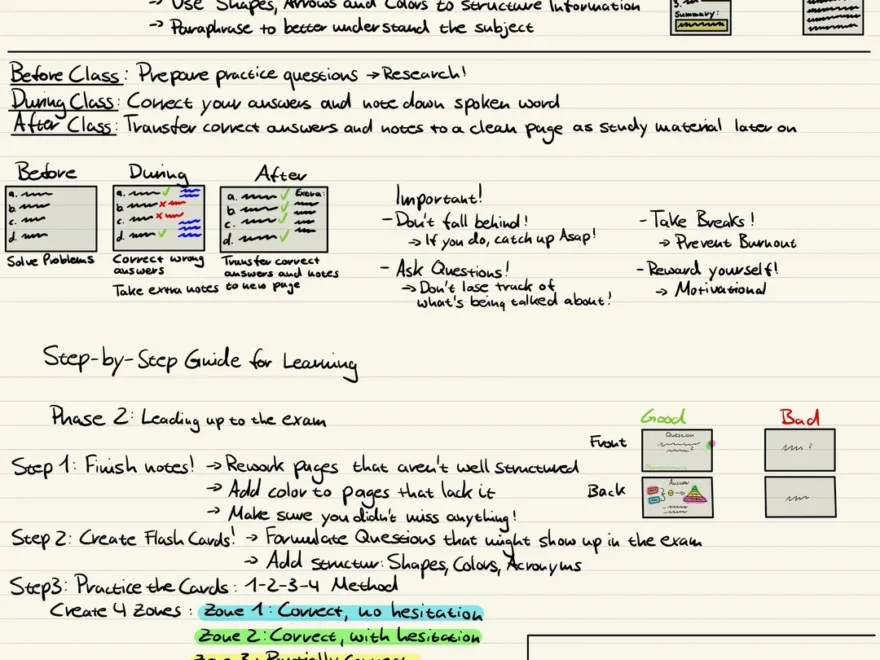 → Use Shapes, Arrows and Colors to Structure Information
→ Paraphrase to better understand the subject
3.
Summary:
Before Class: Prepare practice questions → Research!
During Class: Correct your answers and note down spoken word
After Class: Transfer correct answers and notes to a clean page as study material later on
Before
a.
b
c.
d.
Solve Problems
During
a.
b
c.
d.
Correct wrong
answers
Take extra notes
After
a. Extra:
b
c.
d.
Transfer correct
answers and notes
to new page
Important!
- Don't fall behind!
→ If you do, catch up Asap!
- Ask Questions!
→ Don't lose track of
what's being talked about!
- Take Breaks!
→ Prevent Burnout
- Reward yourself!
→ Motivational
Step-by-Step Guide for Learning
Phase 2: Leading up to the exam
Good Bad
Front
Question
Back
Answer
Step 1: Finish notes! → Rework pages that aren't well structured
→ Add color to pages that lack it
→ Make sure you didn't miss anything!
Step 2: Create Flash Cards! → Formulate Questions that might show up in the exam
→ Add structur: Shapes, Colors, Acronyms
Step 3: Practice the Cards: 1-2-3-4 Method
Create 4 Zones: Zone 1: Correct, no hesitation
Zone 2: Correct, with hesitation
Zone 3: Partially Correct